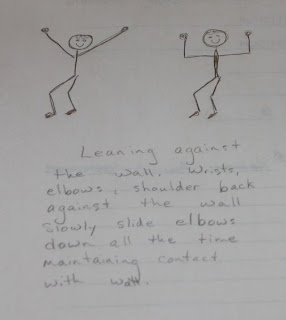 Leaning against
the wall. Wrists,
elbows, shoulder back
against the wall
Slowly slide elbows
down all the time
maintaining contact
with wall.